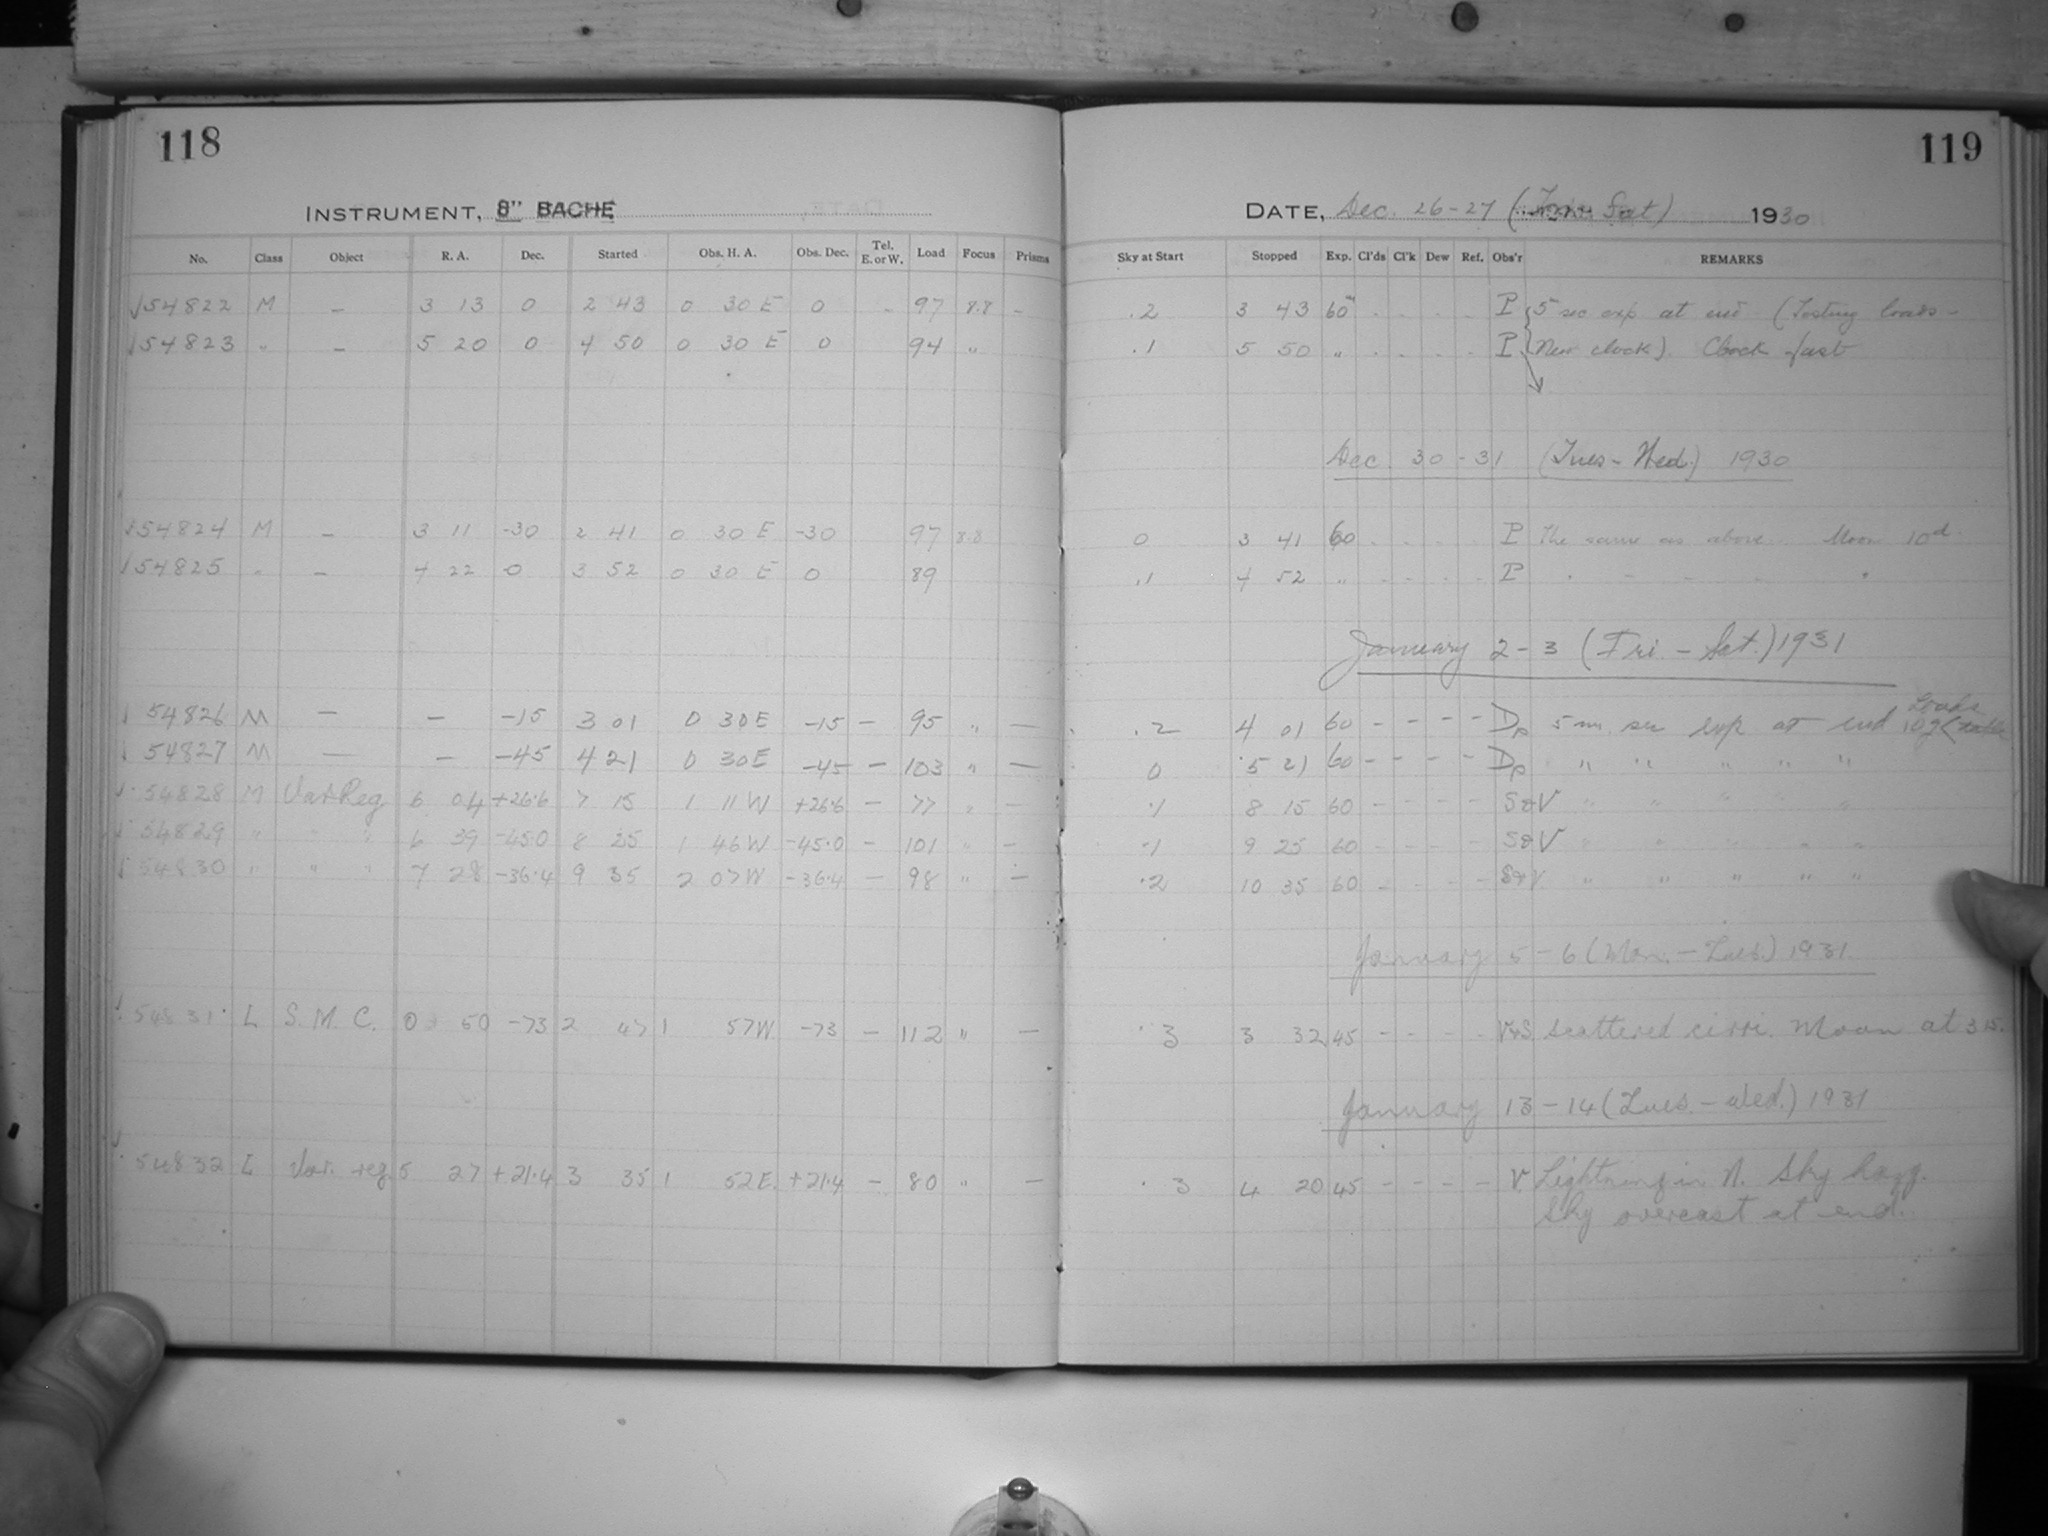 118
119
INSTRUMENT, 8" BACHE
DATE, Dec. 26-27 ( Sat) 1930
No. Class Object R. A. Dec. Started Obs. H. A. Obs. Dec. Tel. E. or W. Load Focus Prisms Sky at Start Stopped Exp. Cl'ds Cl'k Dew Ref. Obs'r REMARKS
54822 M — 3 13 0 2 43 0 30 E 0 - 97 8.8 - .2 3 43 60 - - - - P 5 sec exp at end (Testing loads -
54823 " — 5 20 0 4 50 0 30 E 0 94 " .1 5 50 " - - - - P (New clock). Clock fast
Dec. 30-31 (Tues-Wed.) 1930
54824 M — 3 11 -30 2 41 0 30 E -30 97 8.8 0 3 41 60 - - - - P The same as above. Moon 10d.
54825 " — 4 22 0 3 52 0 30 E 0 89 .1 4 52 " - - - - P " " " " "
January 2-3 (Fri - Sat.) 1931
54826 M — — -15 3 01 0 30E -15 — 95 " — .2 4 01 60 - - - - Dp 5 sec exp at end Loads
54827 M — — -45 4 21 0 30E -45 — 103 " — 0 5 21 60 - - - - Dp " " " " "
54828 M Var Reg 6 04 +26.6 7 15 1 11W +26.6 — 77 " — .1 8 15 60 - - - - S&V " " " " "
54829 " " " 6 39 -45.0 8 25 1 46W -45.0 — 101 " — .1 9 25 60 - - - - S&V " " " " "
54830 " " " 7 28 -36.4 9 35 2 07W -36.4 — 98 " — .2 10 35 60 - - - - S&V " " " " "
January 5-6 (Mon. - Tues.) 1931
54831 L S. M. C. 0 50 -73 2 47 1 57W -73 — 112 " — .3 3 32 45 - - - - V&S scattered cirri. Moon at 3 15.
January 13-14 (Tues. - Wed.) 1931
54832 L Var. reg. 5 27 +21.4 3 35 1 52E. +21.4 — 80 " — .3 4 20 45 - - - - V Lightning in N. Sky hazy.
Sky overcast at end.